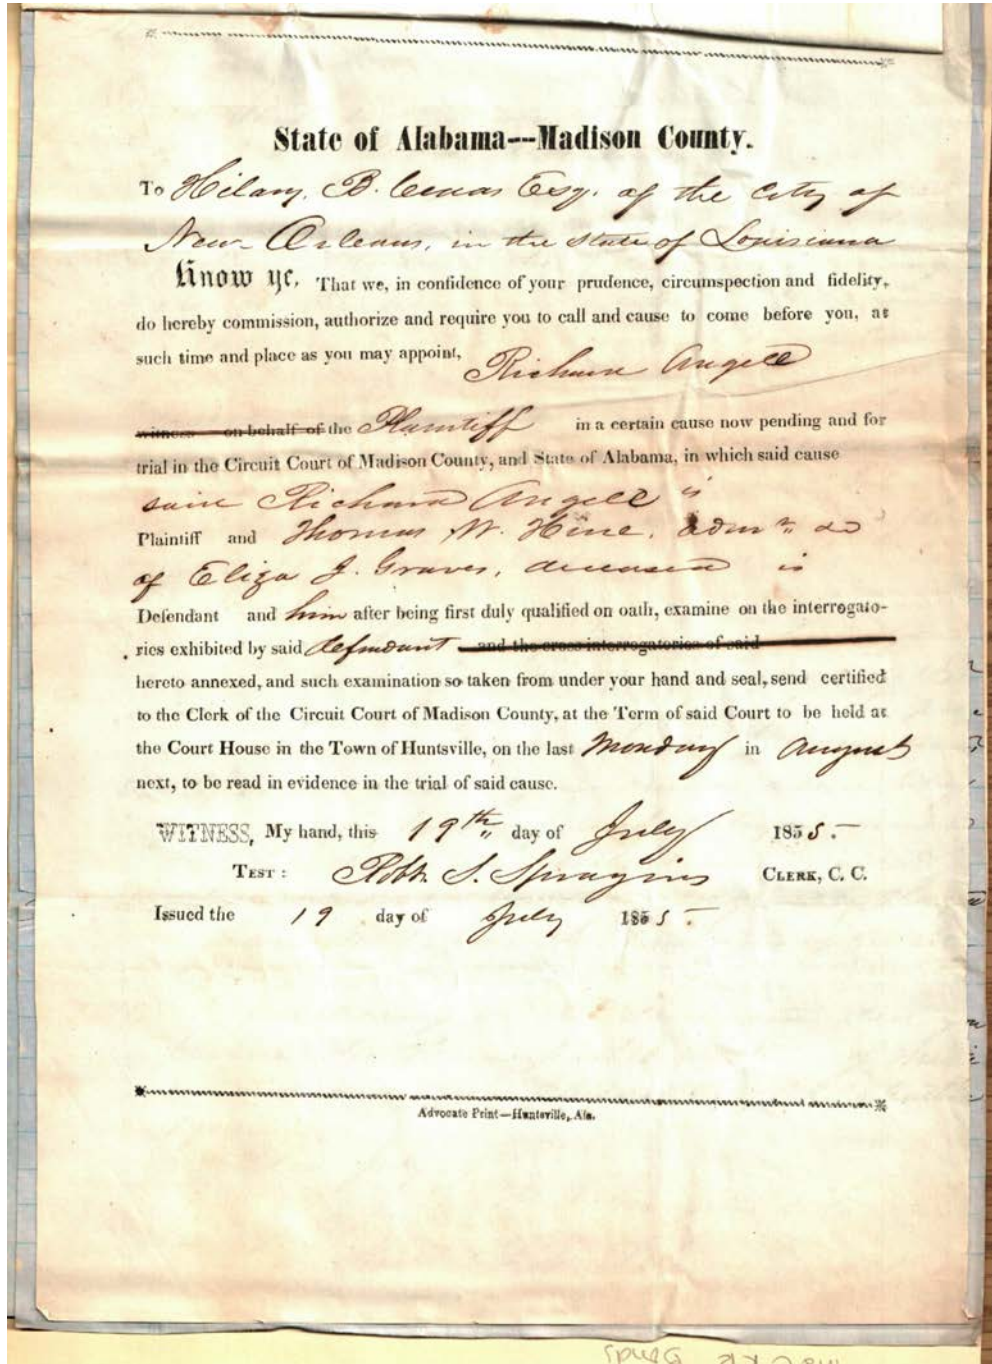 State of Alabama---Madison County.
To Hilary B. Cenas Esq. of the City of
New-Orleans, in the State of Louisiana
Know ye, That we, in confidence of your prudence, circumspection and fidelity,
do hereby commission, authorize and require you to call and cause to come before you, at
such time and place as you may appoint, Richard Angell
witness on behalf of the Plaintiff in a certain cause now pending and for
trial in the Circuit Court of Madison County, and State of Alabama, in which said cause
said Richard Angell is
Plaintiff and Thomas W. Hine, Admr &c
of Eliza J. Graves, deceased is
Defendant and him after being first duly qualified on oath, examine on the interrogato-
ries exhibited by said defendant and the cross interrogatories of said
hereto annexed, and such examination so taken from under your hand and seal, send certified
to the Clerk of the Circuit Court of Madison County, at the Term of said Court to be held at
the Court House in the Town of Huntsville, on the last Monday in August
next, to be read in evidence in the trial of said cause.
WITNESS, My hand, this 19th day of July 1855.
TEST: Robt. S. Spragins CLERK, C. C.
Issued the 19 day of July 1855.
Advocate Print—Huntsville, Ala.